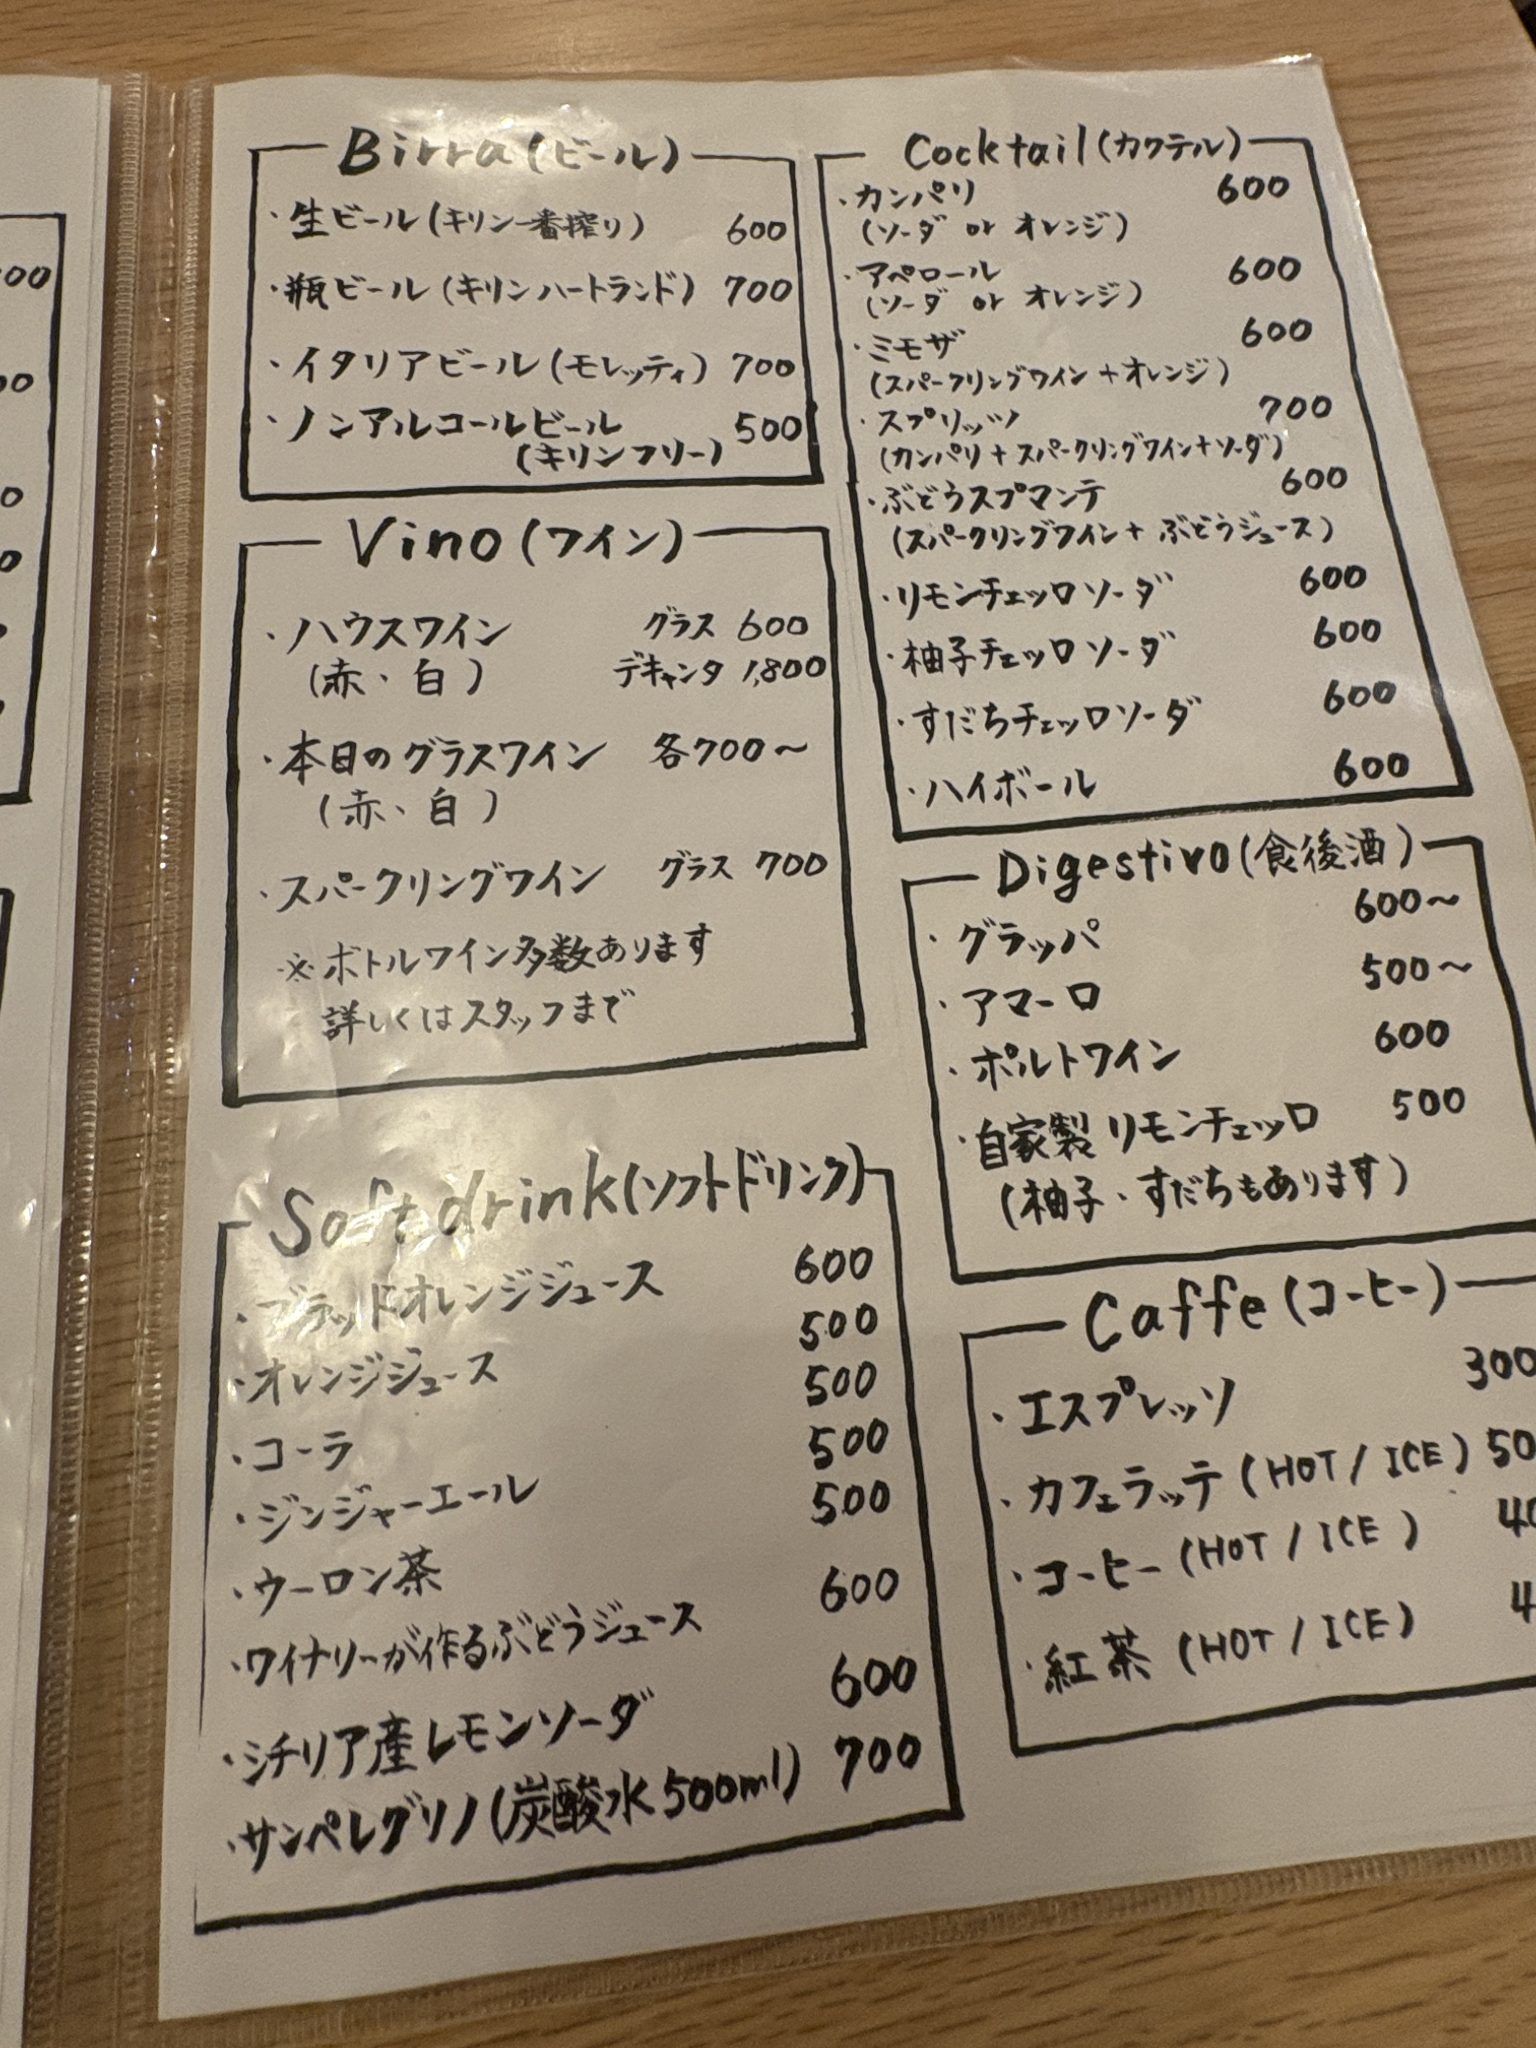 Birra (ビール)
・生ビール (キリン一番搾り) 600
・瓶ビール (キリンハートランド) 700
・イタリアビール (モレッティ) 700
・ノンアルコールビール 500
(キリンフリー)
Vino (ワイン)
・ハウスワイン グラス 600
(赤・白) デキャンタ 1,800
・本日のグラスワイン 各700〜
(赤・白)
・スパークリングワイン グラス 700
※ボトルワイン多数あります
詳しくはスタッフまで
Soft drink (ソフトドリンク)
・ブラッドオレンジジュース 600
・オレンジジュース 500
・コーラ 500
・ジンジャーエール 500
・ウーロン茶 500
・ワイナリーが作るぶどうジュース 600
・シチリア産レモンソーダ 600
・サンペレグリノ (炭酸水 500ml) 700
Cocktail (カクテル)
・カンパリ 600
(ソーダ or オレンジ)
・アペロール 600
(ソーダ or オレンジ)
・ミモザ 600
(スパークリングワイン + オレンジ)
・スプリッツ 700
(カンパリ + スパークリングワイン + ソーダ)
・ぶどうスプマンテ 600
(スパークリングワイン + ぶどうジュース)
・リモンチェッロソーダ 600
・柚子チェッロソーダ 600
・すだちチェッロソーダ 600
・ハイボール 600
Digestivo (食後酒)
・グラッパ 600〜
・アマーロ 500〜
・ポルトワイン 600
・自家製リモンチェッロ 500
(柚子・すだちもあります)
Caffe (コーヒー)
・エスプレッソ 300
・カフェラッテ (HOT / ICE) 50
・コーヒー (HOT / ICE) 40
・紅茶 (HOT / ICE) 4